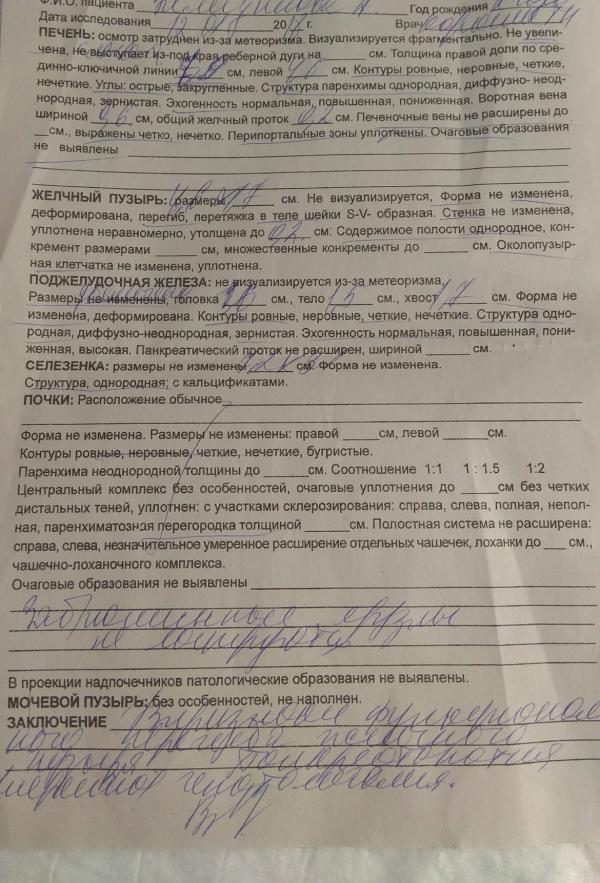 Ф.И.О. пациента
Год рождения
Дата исследования 12 20 г. Врач
ПЕЧЕНЬ: осмотр затруднен из-за метеоризма. Визуализируется фрагментально. Не увели-
чена, не выступает из-под края реберной дуги на см. Толщина правой доли по сре-
динно-ключичной линии см, левой см. Контуры ровные, неровные, четкие,
нечеткие. Углы: острые, закругленные. Структура паренхимы однородная, диффузно- неод-
нородная, зернистая. Эхогенность нормальная, повышенная, пониженная. Воротная вена
шириной 0,6 см, общий желчный проток 0,2 см. Печеночные вены не расширены до
см., выражены четко, нечетко. Перипортальные зоны уплотнены. Очаговые образования
не выявлены
ЖЕЛЧНЫЙ ПУЗЫРЬ: размеры см. Не визуализируется, Форма не изменена,
деформирована, перегиб, перетяжка в теле шейки S-V- образная. Стенка не изменена,
уплотнена неравномерно, утолщена до 0,2 см. Содержимое полости однородное, кон-
кремент размерами см, множественные конкременты до см. Околопузыр-
ная клетчатка не изменена, уплотнена.
ПОДЖЕЛУДОЧНАЯ ЖЕЛЕЗА: не визуализируется из-за метеоризма.
Размеры не изменены, головка см., тело 1,5 см., хвост 1,7 см. Форма не
изменена, деформирована. Контуры ровные, неровные, четкие, нечеткие. Структура одно-
родная, диффузно-неоднородная, зернистая. Эхогенность нормальная, повышенная, пони-
женная, высокая. Панкреатический проток не расширен, шириной см.
СЕЛЕЗЕНКА: размеры не изменены см. Форма не изменена.
Структура, однородная; с кальцификатами.
ПОЧКИ: Расположение обычное
Форма не изменена. Размеры не изменены: правой см, левой см.
Контуры ровные, неровные, четкие, нечеткие, бугристые.
Паренхима неоднородной толщины до см. Соотношение 1:1 1 : 1.5 1:2
Центральный комплекс без особенностей, очаговые уплотнения до см без четких
дистальных теней, уплотнен: с участками склерозирования: справа, слева, полная, непол-
ная, паренхиматозная перегородка толщиной см. Полостная система не расширена:
справа, слева, незначительное умеренное расширение отдельных чашечек, лоханки до см.,
чашечно-лоханочного комплекса.
Очаговые образования не выявлены
Забрюшинные узлы
не лоцируются
В проекции надпочечников патологические образования не выявлены.
МОЧЕВОЙ ПУЗЫРЬ: без особенностей, не наполнен.
ЗАКЛЮЧЕНИЕ Признаки функционал
ного перегиба желчного
пузыря